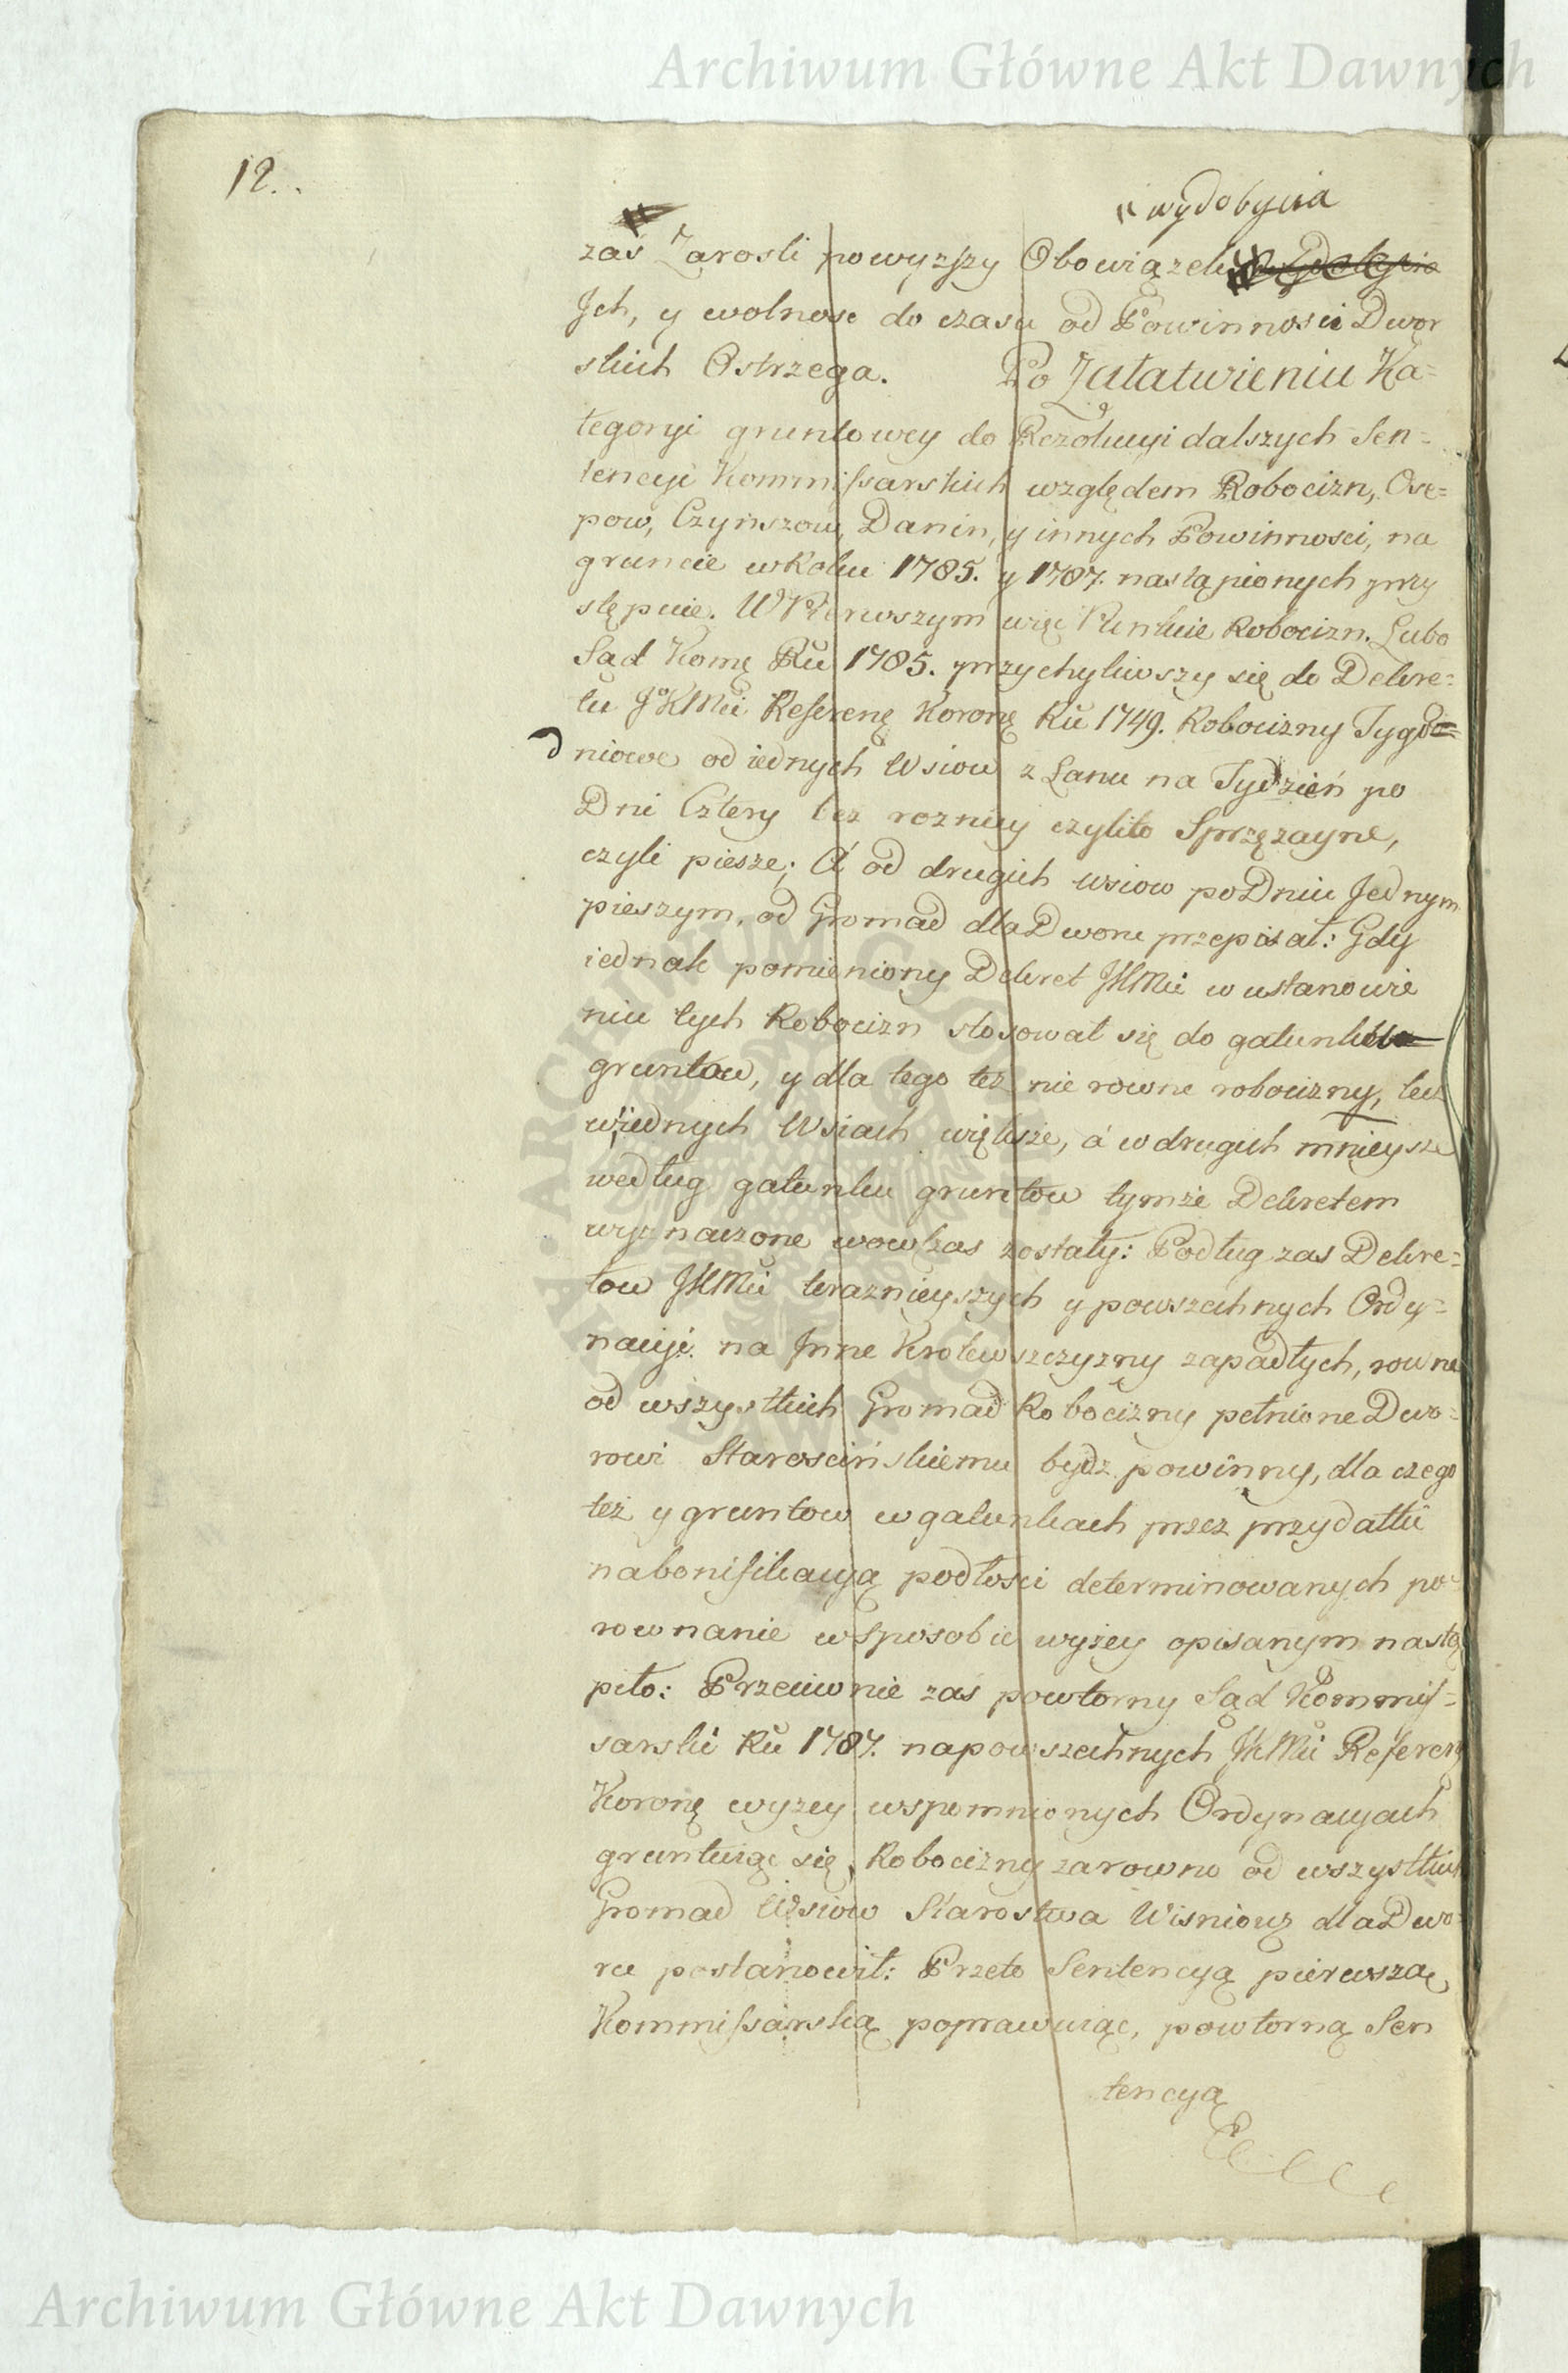 Archiwum Główne Akt Dawnych
12.
wydobycia
zaś Zarosli powyzszy Obowiązek
Ich, y wolnosc do czasu od Powinnosci Dwor
skich Ostrzega. Po Załatwieniu Ka=
tegoryi gruntowey do Rezolucyi dalszych Sen=
tencyi Kommissarskich względem Robocizn, Ose=
pow, Czynszow, Danin, y innych Powinnosci, na
gruncie w Roku 1785. y 1787. nastąpionych przy
stępuie. W Pierwszym więc Punkcie Robocizn. Lubo
Sąd Komę Ru 1785. przychyliwszy się do Dekre=
tu JoKMci Referenę Koronę Ru 1749. Robocizny Tygo=
dniowe od iednych Wsiow z Łanu na Tydzień po
Dni Cztery bez roznicy czylito Sprzęzayne,
czyli piesze; A od drugich wsiow po Dniu Jednym
pieszym, od Gromad dla Dworu przepisał: Gdy
iednak pomieniony Dekret JKMci w ustanowie
niu tych Robocizn stosował się do gatunku
gruntow, y dla tego tez nie rowne robocizny, lecz
w iednych Wsiach większe, á w drugich mnieysze
według gatunku gruntow tymże Dekretem
wyznaczone wowczas zostały: Podług zas Dekre=
tow JKMci teraznieyszych y powszechnych Ordy=
nacyi na Inne Krolewszczyzny zapadłych, rowne
od wszystkich Gromad Robocizny pełnione Dwo=
rowi Starościńskiemu bydz powinny, dla czego
też y gruntow w gatunkach przez przydatki
na bonifikacyą podłosci determinowanych po=
rownanie w sposobie wyżey opisanym nastą
piło: Przeciwnie zaś powtorny Sąd Kommis=
sarski Ru 1787. na powszechnych JKMci Referen
Koronę wyzey wspomnionych Ordynacyach
gruntuiąc się, Robocizny zarowno od wszystkich
Gromad Wsiow Starostwa Wisniow dla Dwo=
ru postanowił: Przeto Sentencyą pierwszą
Kommissarską poprawuiąc, powtorną Sen
tencyą
Archiwum Główne Akt Dawnych